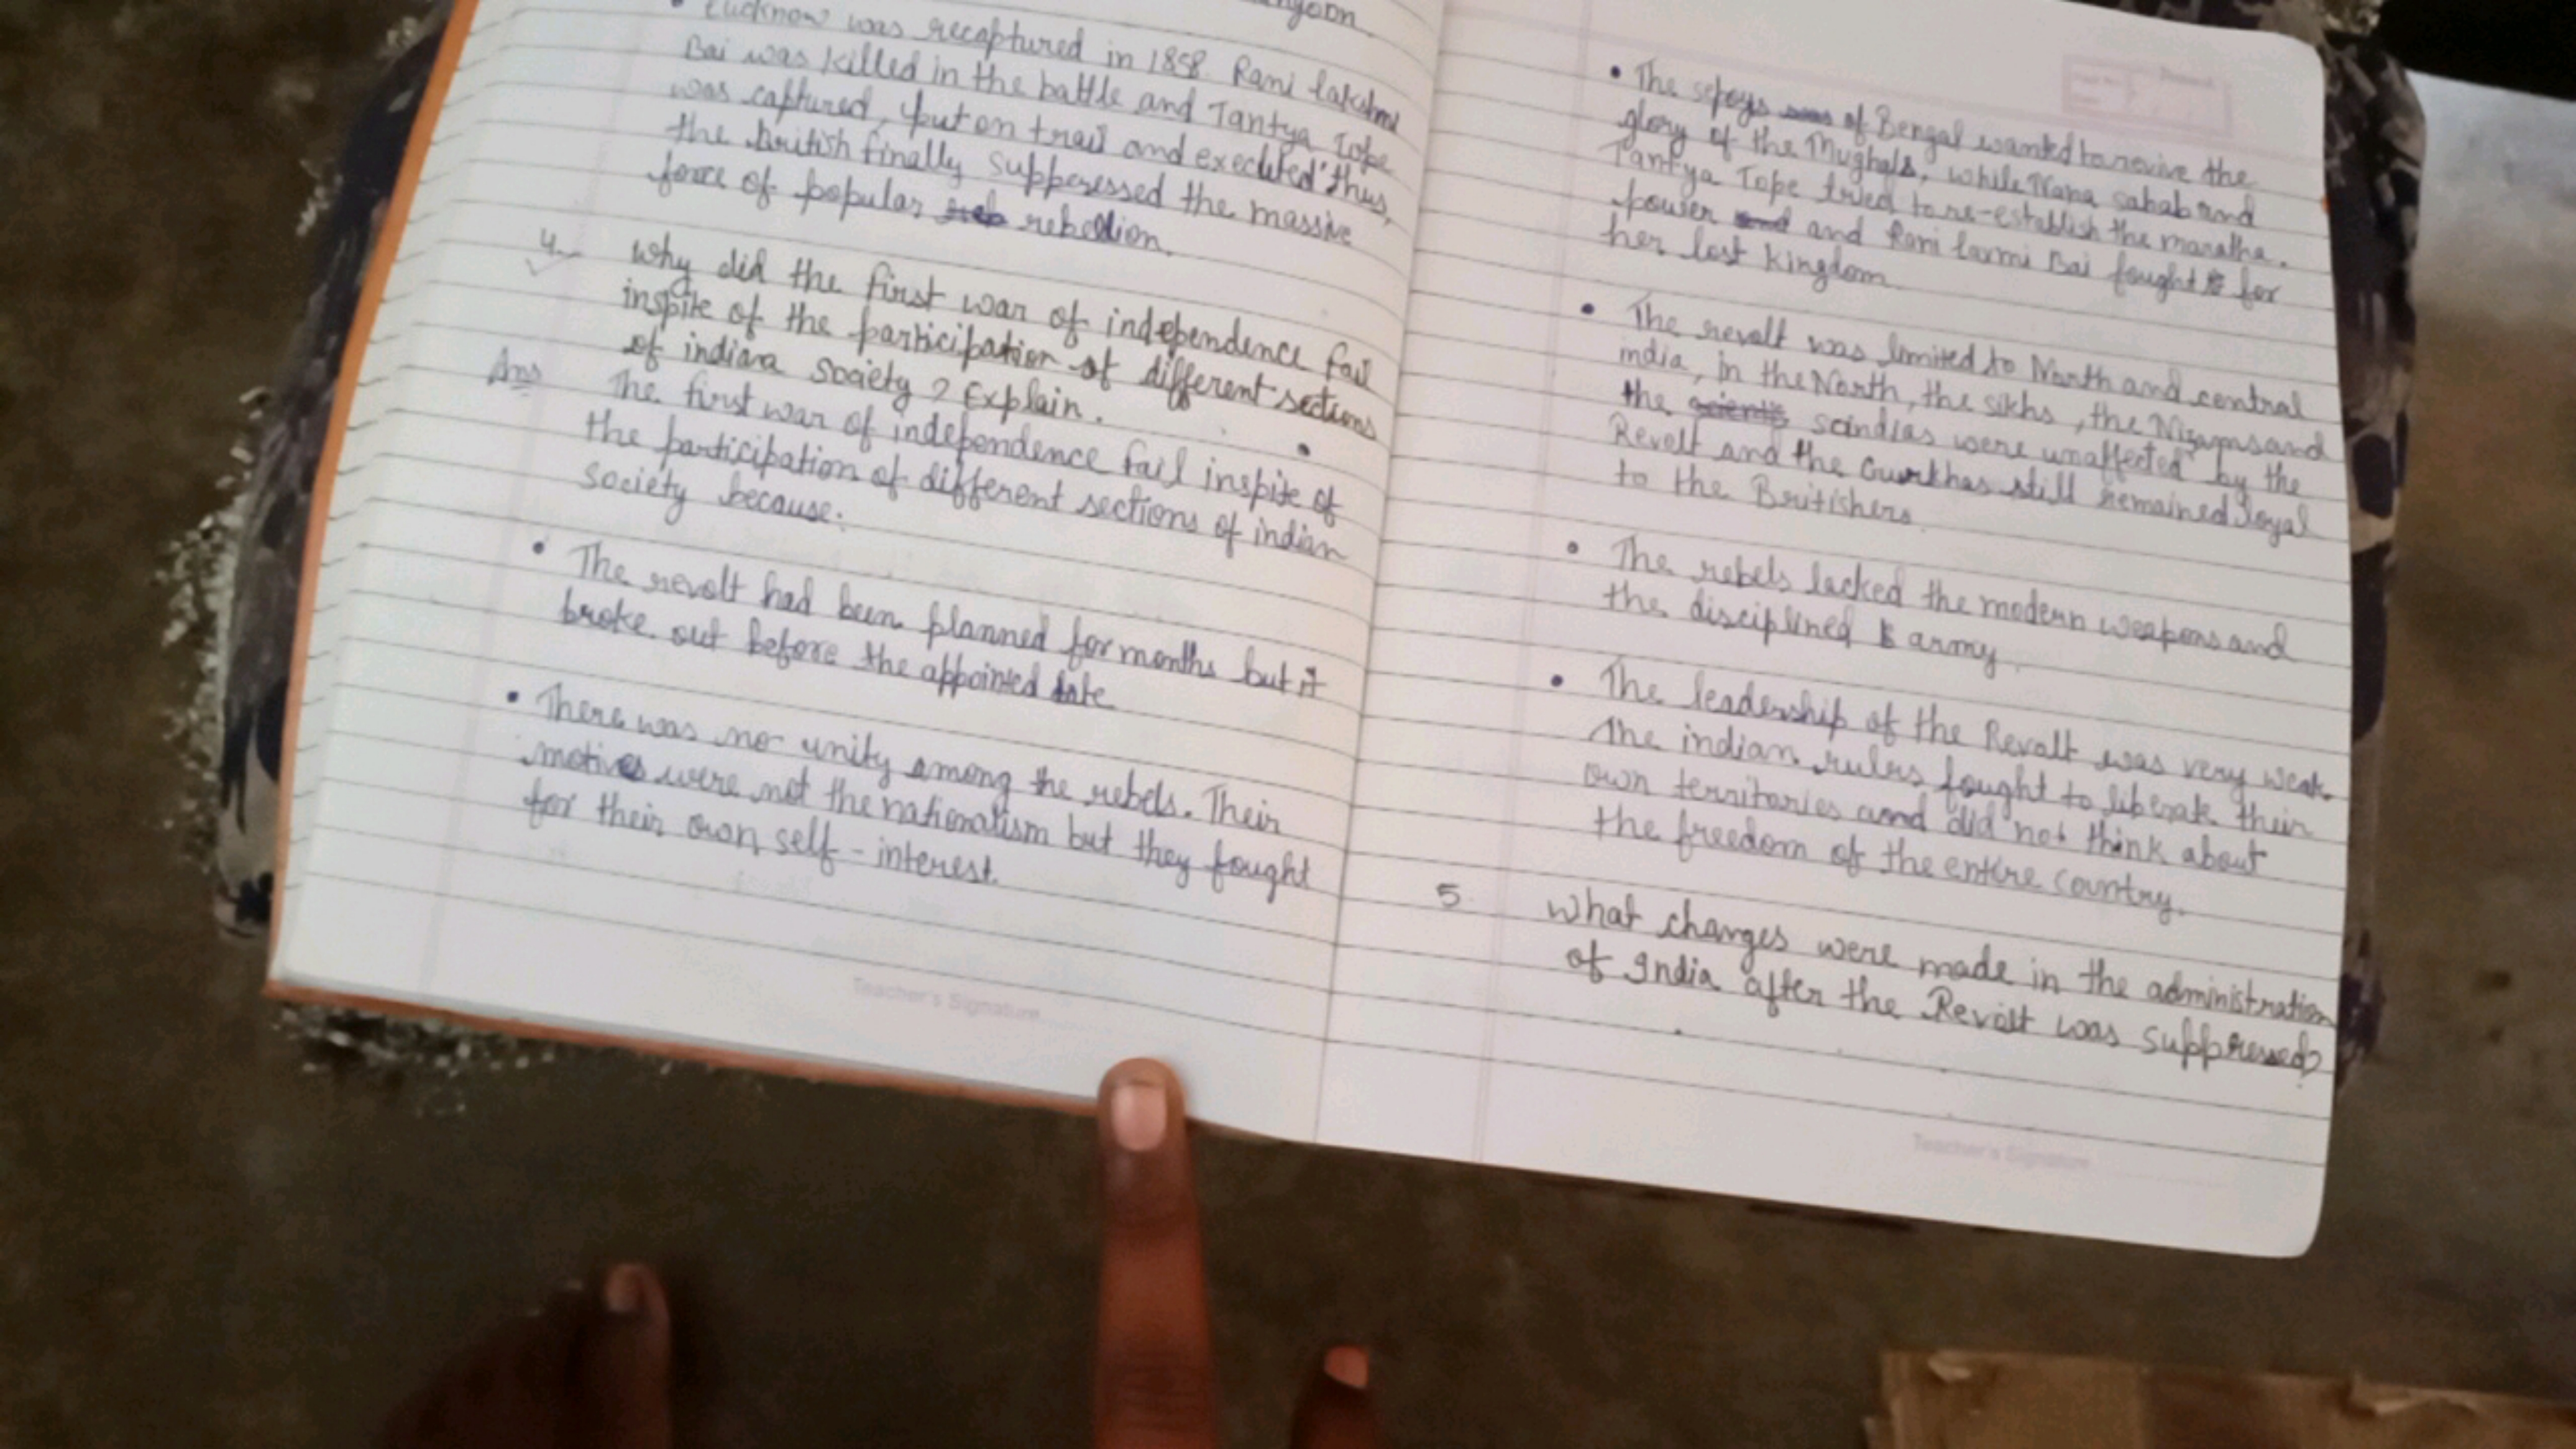 Lucknow was recaptured in 1858. Rani lakshmi
Bai was killed in the battle and Tantya Tope
was captured, put on trail and executed thus,
the british finally suppressed the massive
force of popular rebellion.
4. Why did the first war of independence fail
inspite of the participation of different sections
of indiana society ? Explain.
Ans The first war of independence fail inspite of
the participation of different sections of indian
society because:
• The revolt had been planned for months but it
broke out before the appointed date
• There was no unity among the rebels. Their
motives were not the nationalism but they fought
for their own self-interest.
Teacher's Signature
• The sepoys of Bengal wanted to revive the
glory of the Mughals, while Nana sahab and
Tantya Tope tried to re-establish the maratha.
power and Rani laxmi Bai fought for
her lost kingdom
• The revolt was limited to North and central
india, in the North, the sikhs, the Nizams and
the scindias were unaffected by the
Revolt and the Gurkhas still remained loyal
to the Britishers.
• The rebels lacked the modern weapons and
the disciplined army.
• The leadership of the Revolt was very weak.
The indian rulers fought to liberate their
own territories and did not think about
the freedom of the entire country.
5 What changes were made in the administration
of India after the Revolt was suppressed?
Teacher's Signature